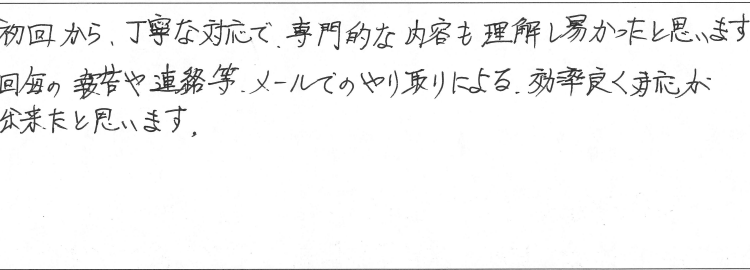 初回から、丁寧な対応で、専門的な内容も理解し易かったと思います
回毎の報告や連絡等、メールでのやり取りによる、効率良く対応が
出来たと思います。